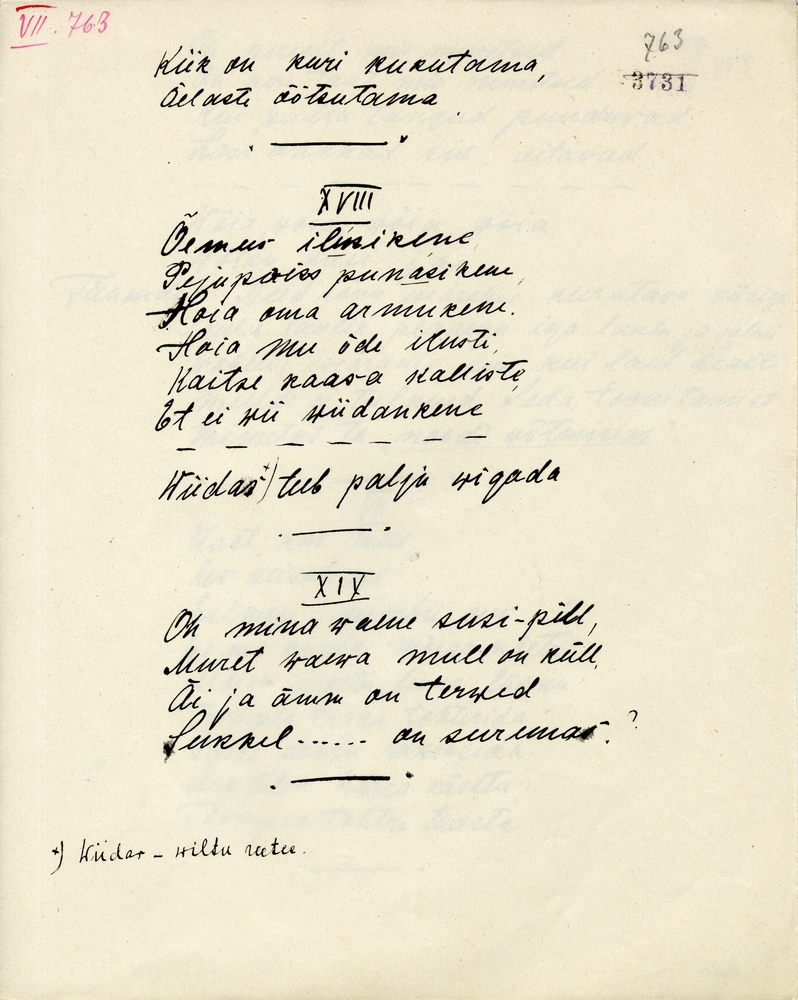 VII. 763
763
3731
Kiik on kuri kukutama,
Äelaste öötsutama
XVIII
Õemees ilusikene,
Pejupoiss punasikene,
Hoia oma armukene.
Hoia mu õde ilusti,
Kaitse kaasa kalliste,
Et ei wii wiidankene
Wiidas +) teeb palju wigada
XIX
Oh mina waene susi-pill,
Muret waewa mull on küll,
Äi ja ämm on terwed
Sukkel ...... on suremas.?
+) Wiidas – wiltu